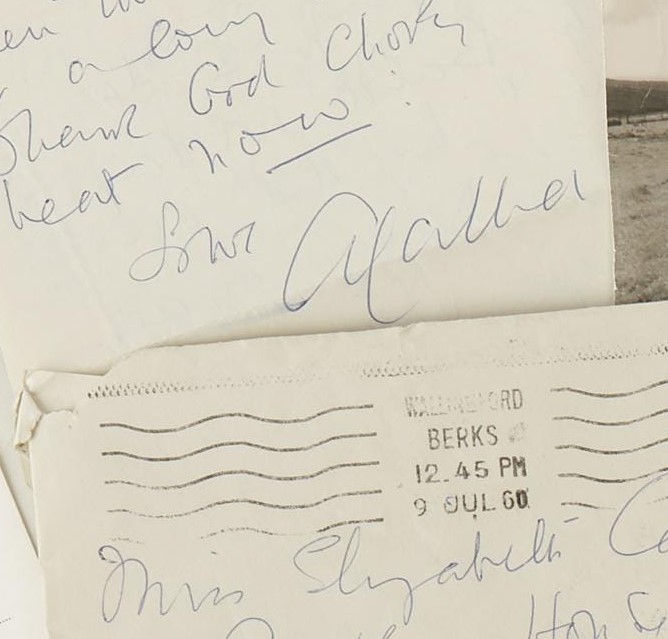 a long
Thank God
heat now.
Love Agatha
WALLINGFORD
BERKS
12.45 PM
9 JUL 60
Miss Elizabeth